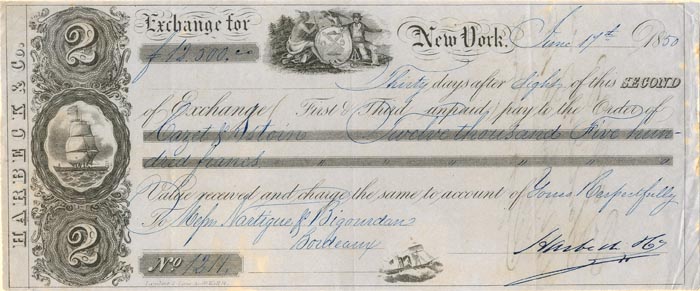 HARBECK & Co.
2
2
Exchange for New York, June 17th 1850
f 12,500.--
Thirty days after Sight of this SECOND
of Exchange (First & Third unpaid) pay to the Order of
Cazet & Astoin Twelve thousand Five hun-
dred francs " " " " "
Value received and charge the same to account of Yours Respectfully
To Messrs Lartigue & Bigourdan
Bordeaux
Harbeck & Co
No 1211